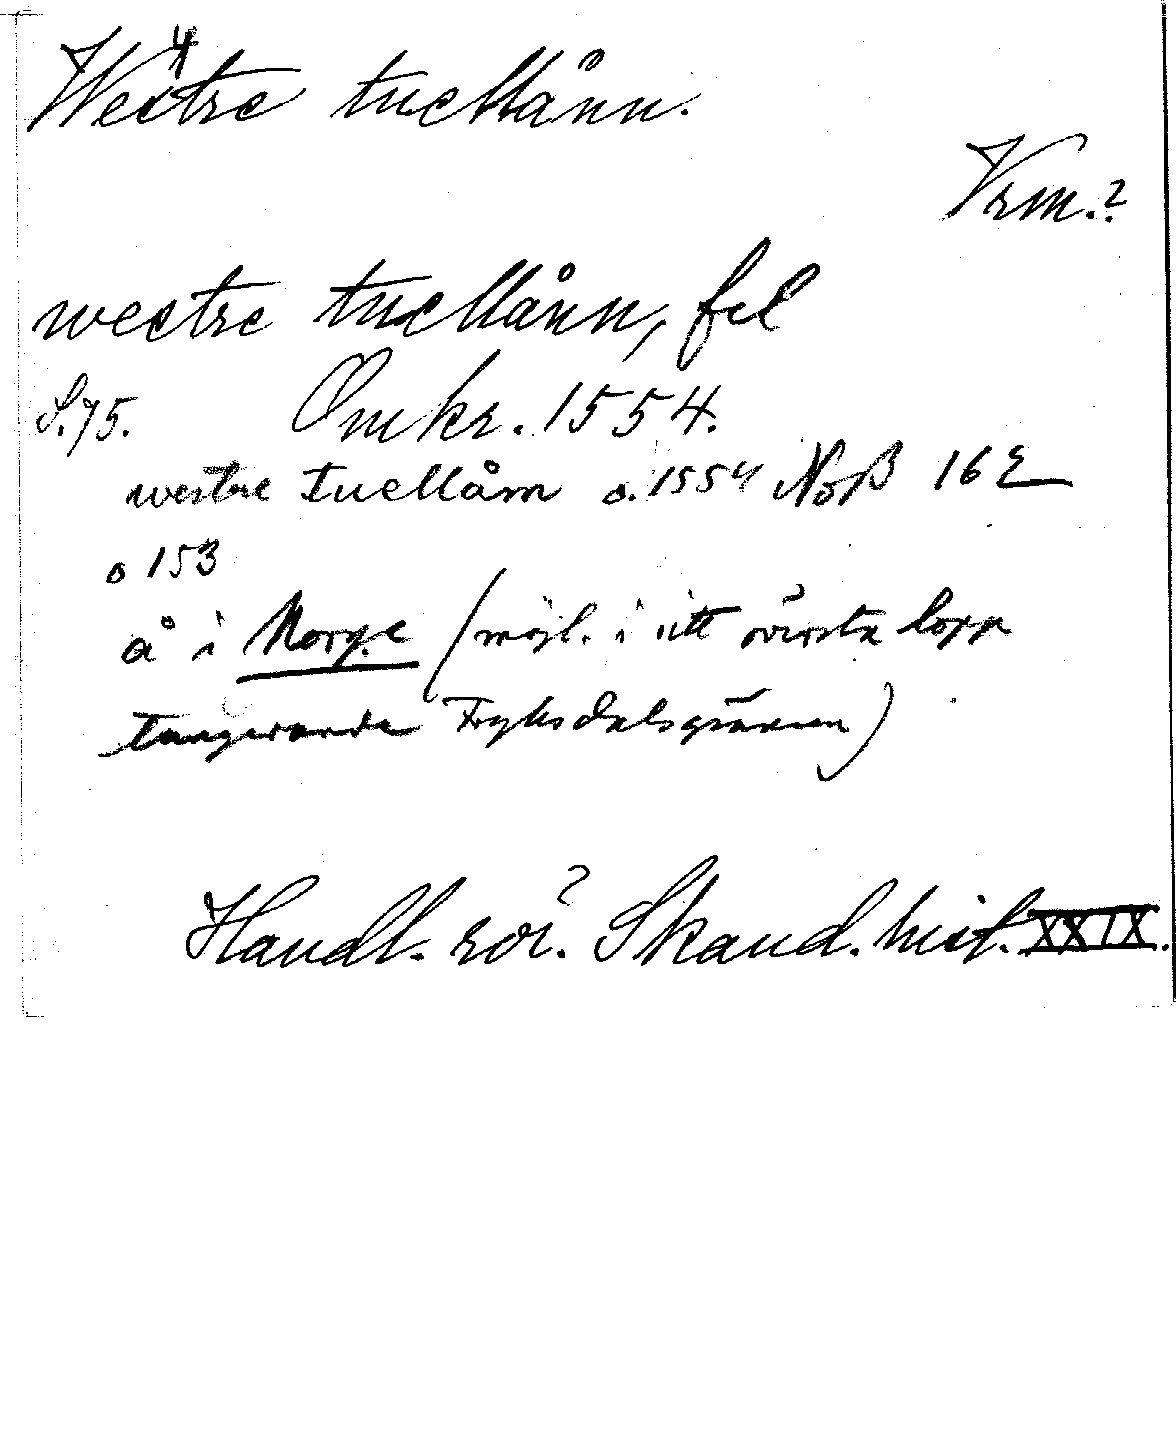 Westre tuellånn.
Vrm.?
westre tuellånn, fel
S. 75. Omkr. 1554.
westre tuellåm o. 1554 NoB 16
o 153
å i Norge (möjl. i sitt översta lopp
tangerande Fryksdalsgränsen)
Handl. rör. Skand. hist. XXIX.